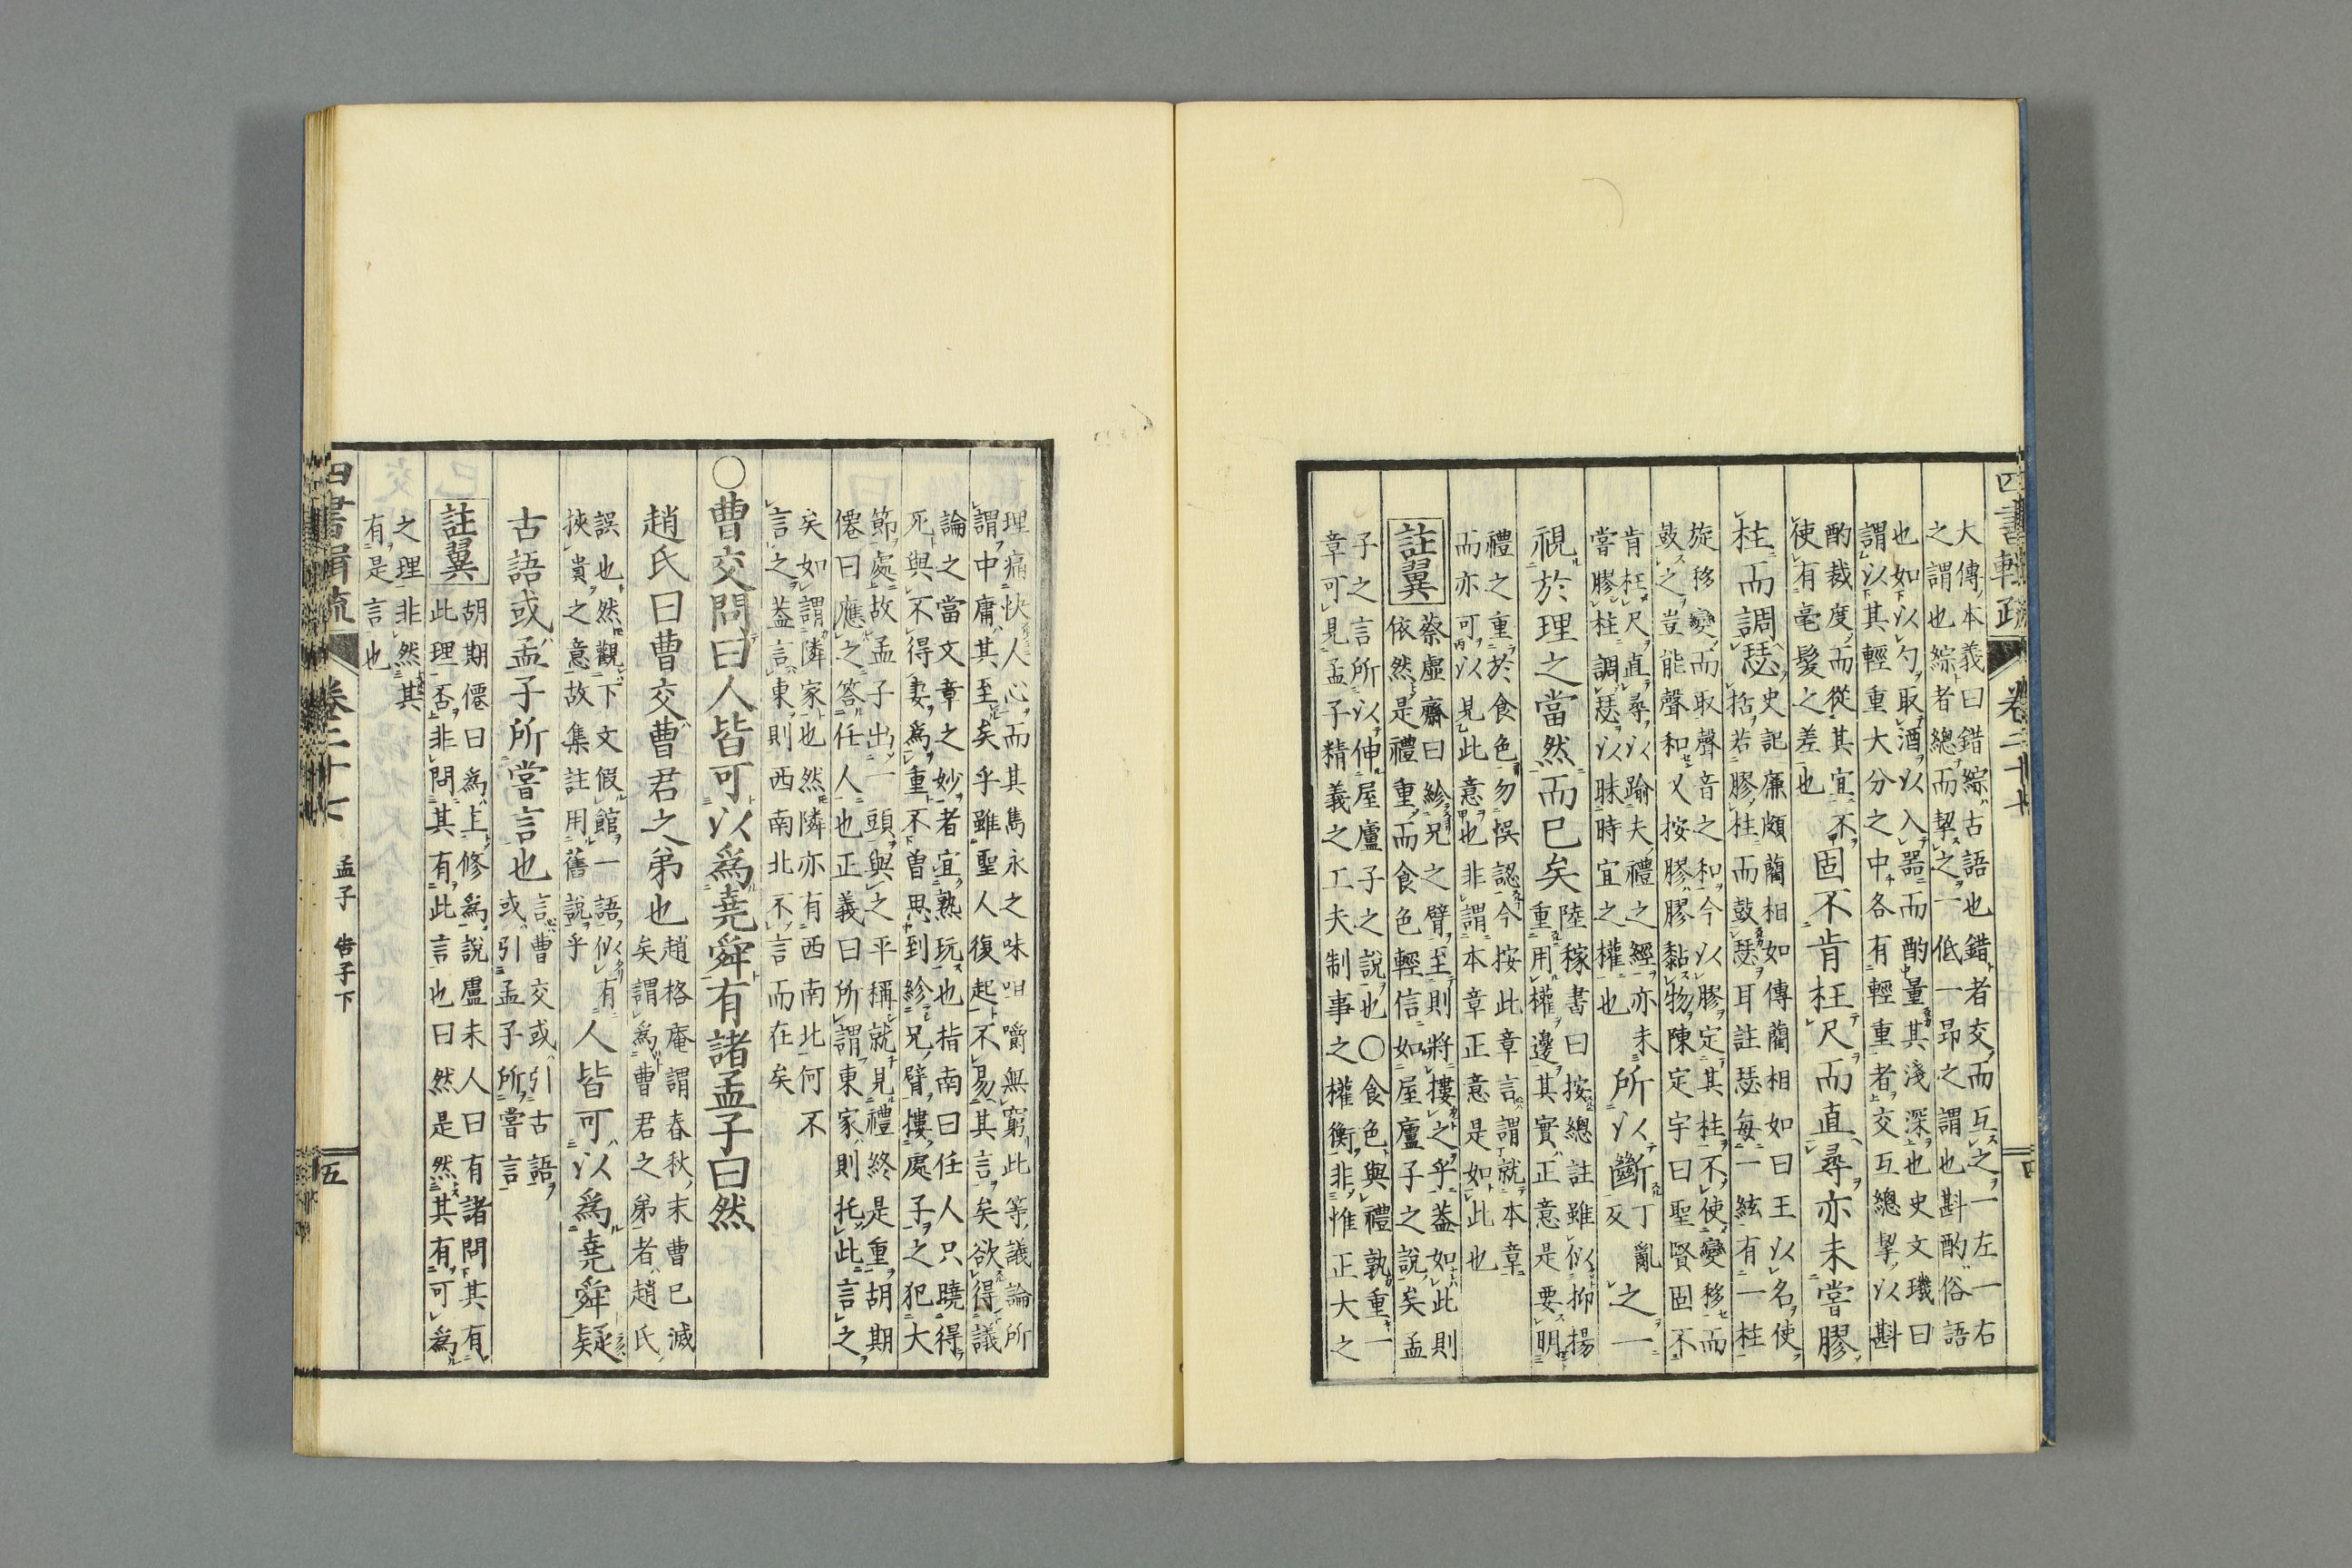 四書輯疏 卷二十七 四
大傳本義曰錯綜古語也錯者交而互之一左一右
之謂也綜者總而挈之一低一昂之謂也斟酌俗語
也如以勺取酒以入器而酌量其淺深也史文璣曰
謂以其輕重大分之中各有輕重者交互總挈以斟
酌裁度而從其宜不
使有毫髮之差也
固不肯枉尺而直尋亦未嘗膠
柱而調瑟
史記廉頗藺相如傳藺相如曰王以名使
括若膠柱而鼓瑟耳註瑟每一絃有一柱
旋移變而取聲音之和今以膠定其柱不使變移而
鼓之豈能聲和乂按膠膠黏物陳定宇曰聖賢固不
肯枉尺直尋以踰夫禮之經亦未
嘗膠柱調瑟以昧時宜之權也
所以斷
丁亂
反
之一
視於理之當然而已矣
陸稼書曰按總註雖似抑揚
重用權邊其實正意是要明
禮之重於食色勿悞認今按此章言謂就本章
而亦可以見此意也非謂本章正意是如此也
註翼
蔡虛齋曰紾兄之臂至則將摟之乎蓋如此則
依然是禮重而食色輕信如屋廬子之說矣孟
子之言所以伸屋廬子之說也○食色與禮孰重一
章可見孟子精義之工夫制事之權衡非惟正大之
理痛快人心而其雋永之味咀嚼無窮此等議論所
謂中庸其至矣乎雖聖人復起不易其言矣欲得議
論之當文章之妙者宜熟玩也指南曰任人只曉得
死與不得妻為重不曾思到紾兄臂摟處子之犯大
節處故孟子出一頭與之平稱就見禮終是重胡期
僊曰應之答任人也正義曰所謂東家則托此言之
矣如謂隣家也然隣亦有西南北何不
言之蓋言東則西南北不言而在矣
○曹交問曰人皆可以為堯舜有諸孟子曰然
趙氏曰曹交曹君之弟也
趙格庵謂春秋末曹已滅
矣謂為曹君之弟者趙氏
誤也然觀下文假館一語似有
挾貴之意故集註用舊說乎
人皆可以為堯舜疑
古語或孟子所嘗言也
言曹交或引古語
或引孟子所嘗言
註翼
胡期僊曰為上修為說盧未人曰有諸問其有
此理否非問其有此言也曰然是然其有可為
之理非然其
有是言也
四書輯疏 卷二十七 孟子 告子下 五